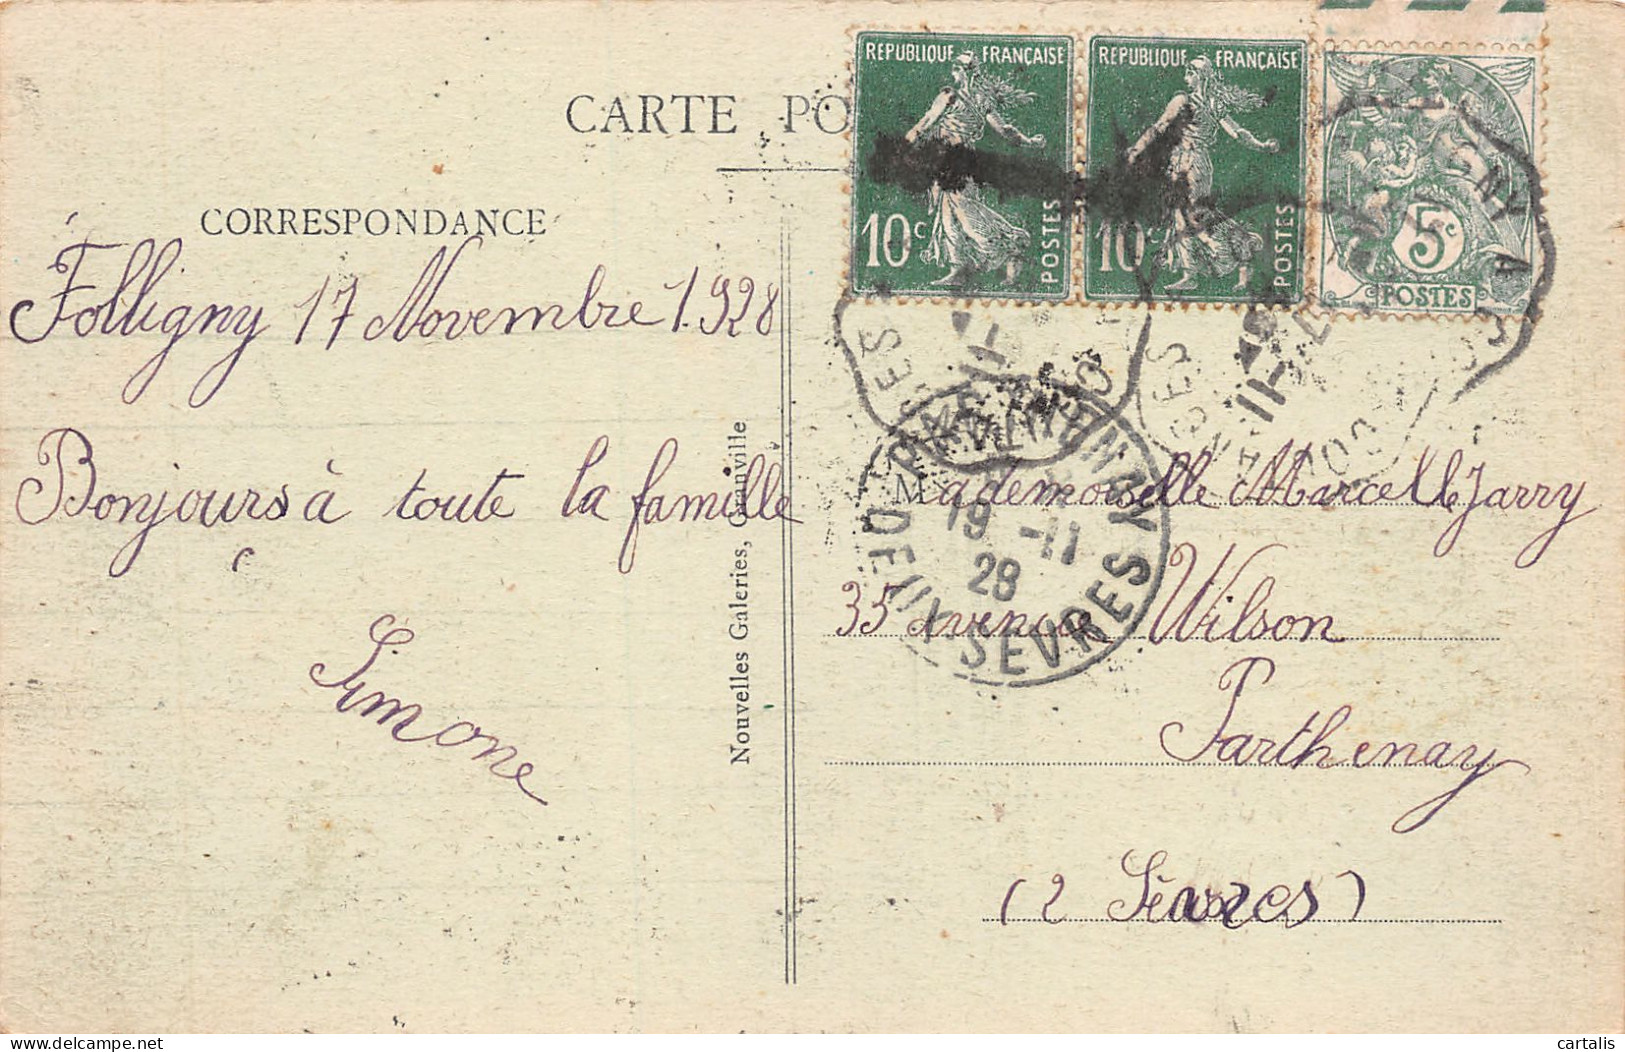 CARTE PO
CORRESPONDANCE
Folligny 17 Novembre 1928
Bonjours à toute la famille
Simone
Nouvelles Galeries, Granville
REPUBLIQUE FRANÇAISE
10c
POSTES
REPUBLIQUE FRANÇAISE
10c
POSTES
5c
POSTES
PARTHENAY
19 -11
28
DEUX SEVRES
Mademoiselle Marcelle Jarry
35 Avenue Wilson
Parthenay
(2 Sèvres)
delcampe.net
cartalis